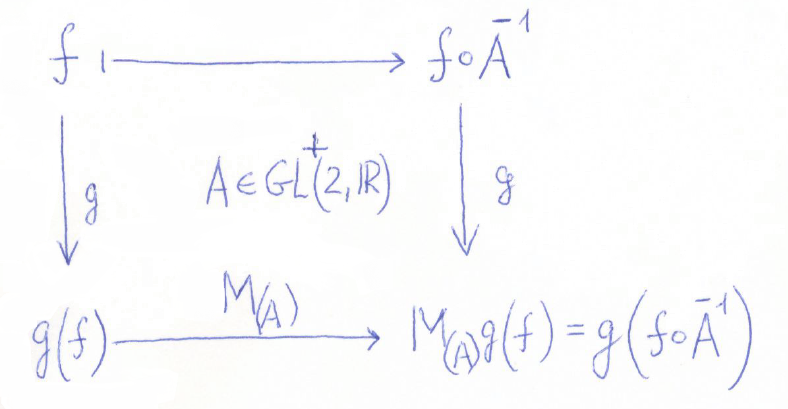 f ⟼ f∘A⁻¹
g A∈GL⁺(2,ℝ) g
M(A)
g(f) → M(A)g(f) = g(f∘A⁻¹)